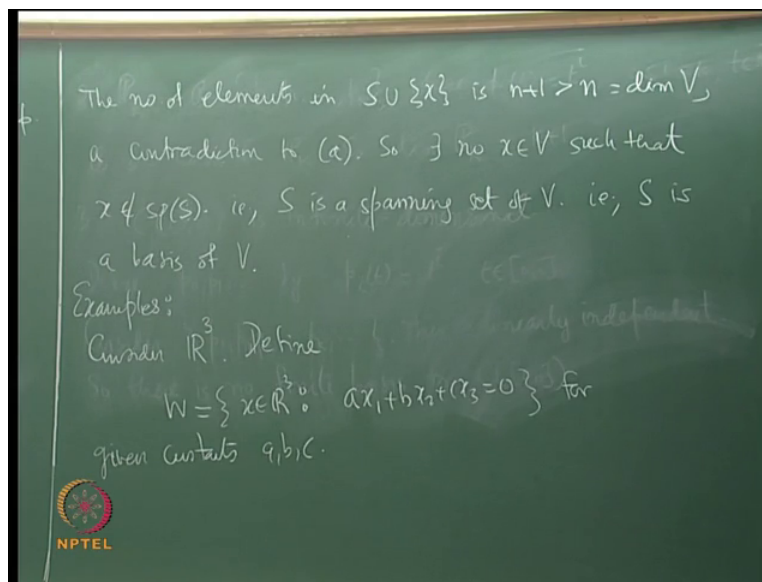 The no of elements in S ∪ {x} is n+1 > n = dim V,
a contradiction to (a). So ∃ no x ∈ V such that
x ∉ sp(S). ie, S is a spanning set of V. ie, S is
a basis of V.
Examples:
Consider ℝ³. Define
W = { x ∈ ℝ³ : ax₁ + bx₂ + cx₃ = 0 } for
given constants a, b, c.
NPTEL